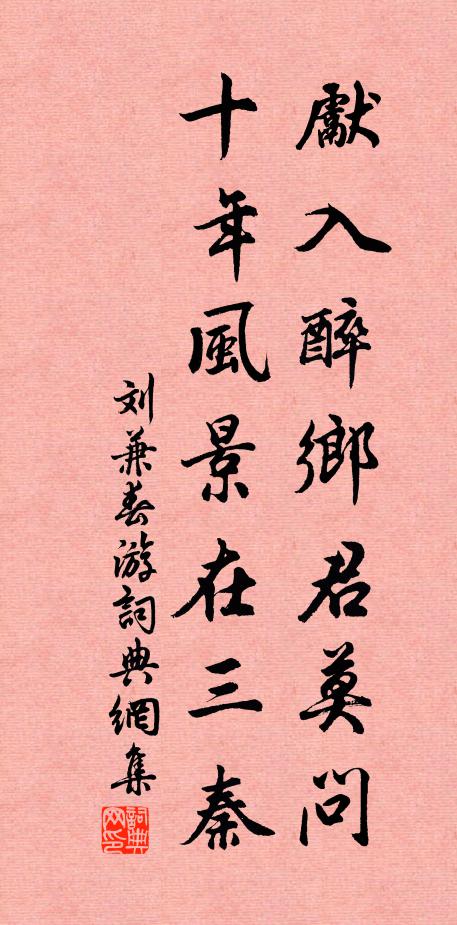 獻入醉鄉君莫問
十年風景在三秦
刘兼春游詞典網集
詞典網印